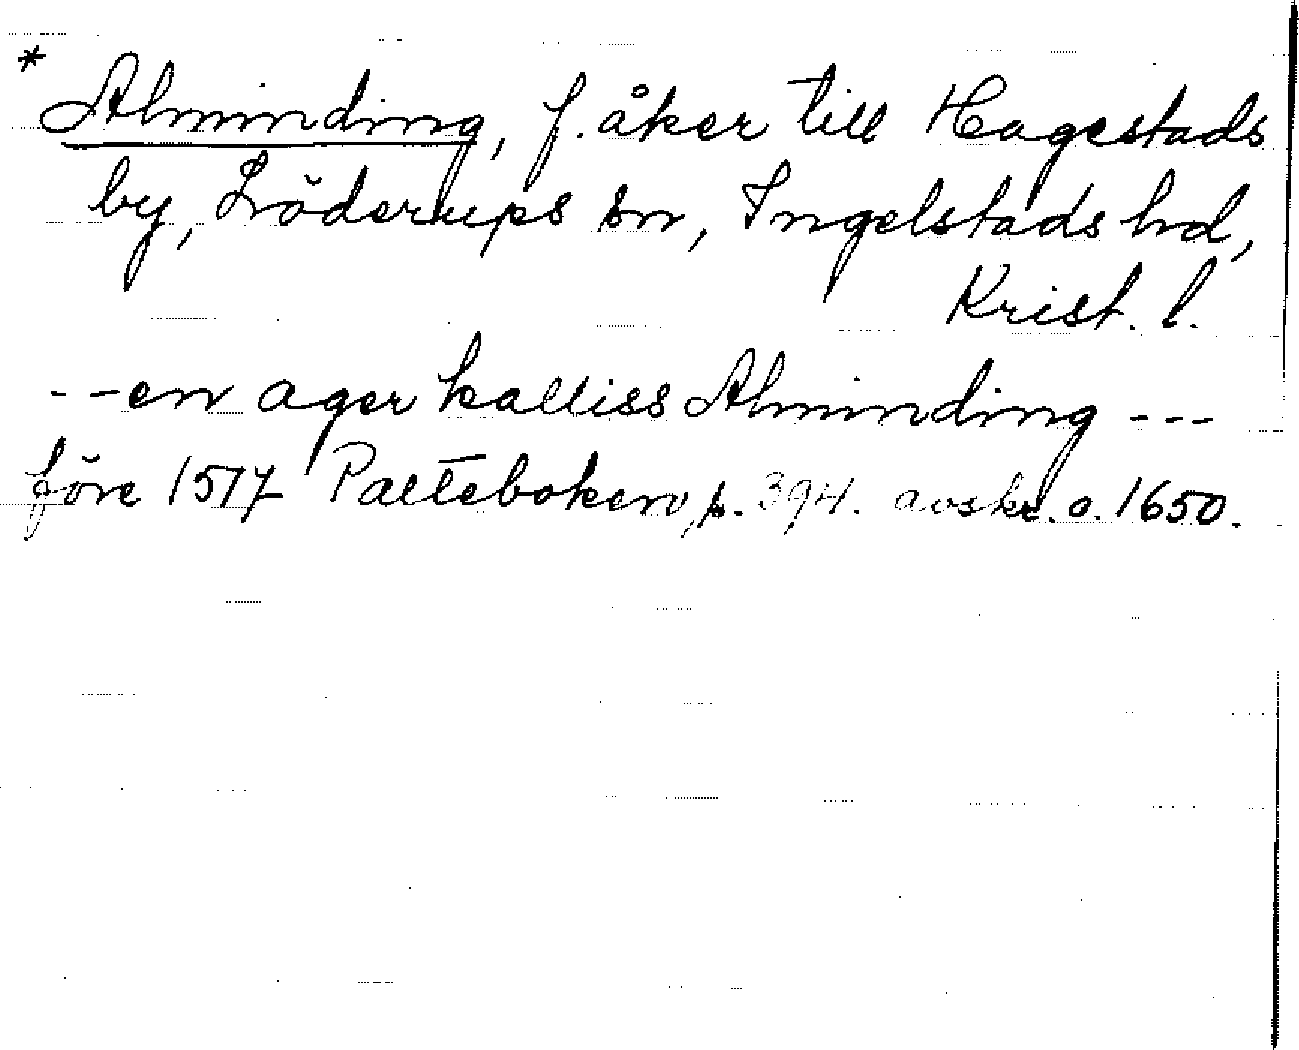 * Alminding, f. åker till Hagestads
by, Löderups sn, Ingelstads hd,
Krist. l.
--en ager kalliss Alminding ---
före 1517 Palteboken, s. 394. avskr. o. 1650.